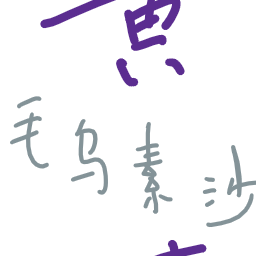 黄
毛乌素沙